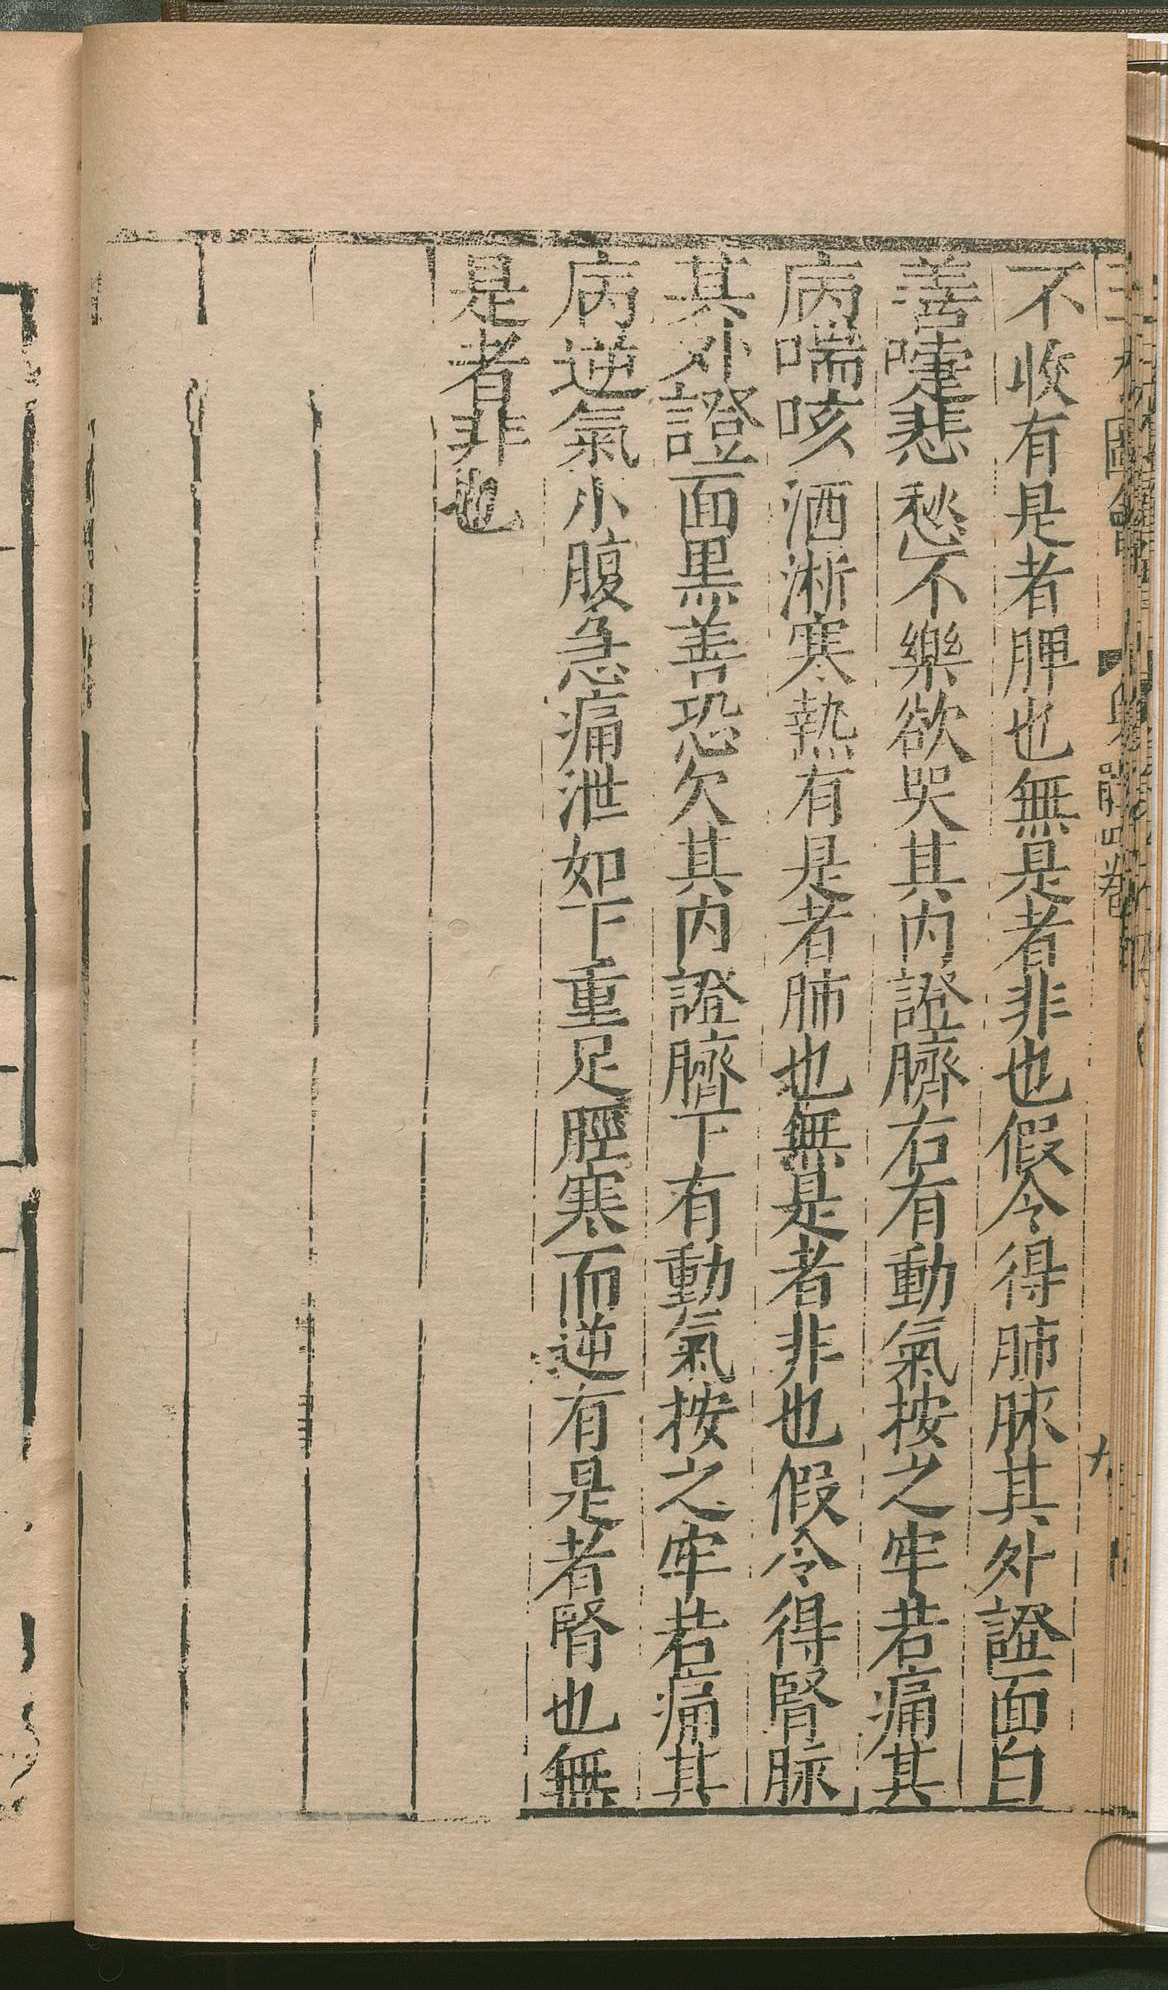 不收有是者脾也無是者非也假令得肺脉其外證面白
善嚏悲愁不樂欲哭其內證臍右有動氣按之牢若痛其
病喘咳洒淅寒熱有是者肺也無是者非也假令得腎脉
其外證面黑善恐欠其內證臍下有動氣按之牢若痛其
病逆氣小腹急痛泄如下重足脛寒而逆有是者腎也無
是者非也